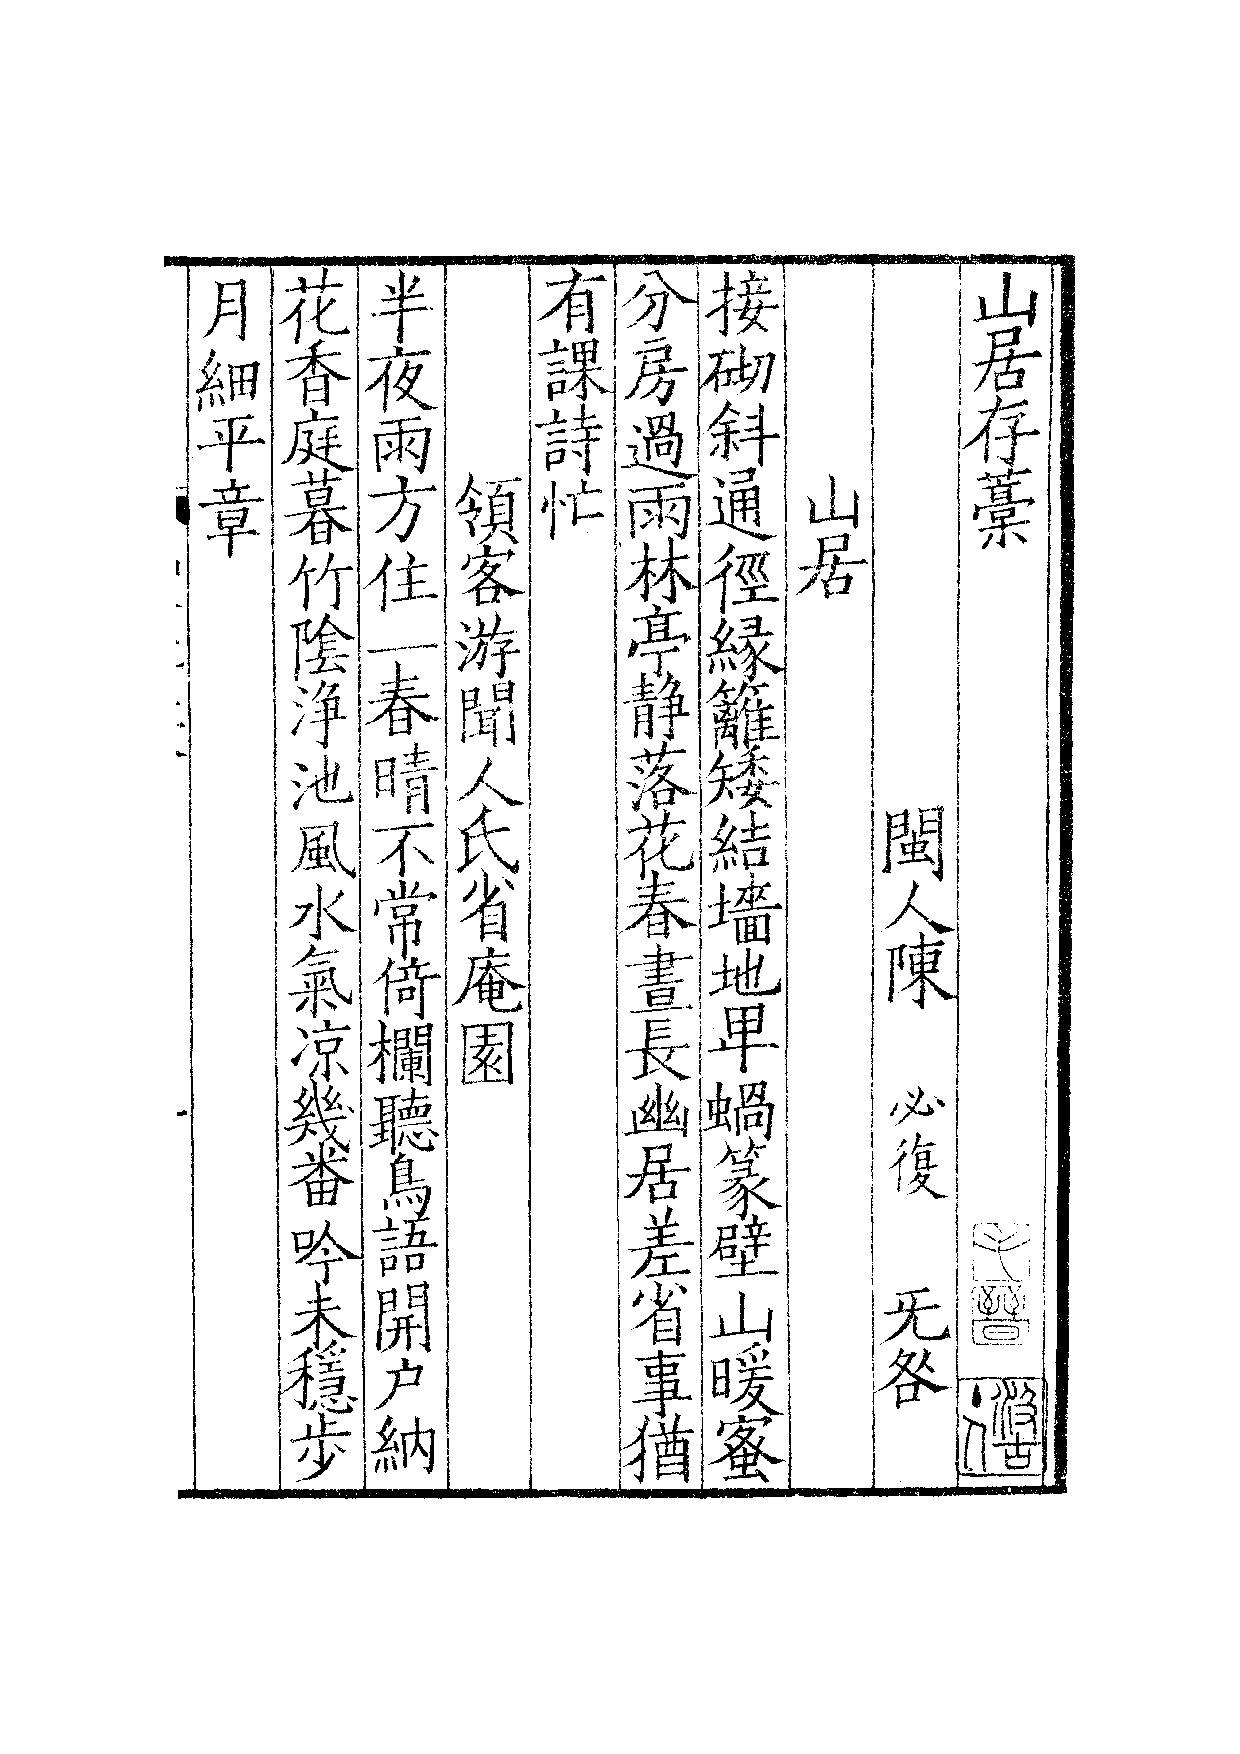 山居存藁
閩人陳 必復 旡咎
山居
接砌斜通徑縁籬矮結墻地卑蝸篆壁山暖蜜
分房過雨林亭静落花春晝長幽居差省事猶
有課詩忙
領客游聞人氏省庵園
半夜雨方住一春晴不常倚欄聽鳥語開户納
花香庭暮竹陰浄池風水氣凉幾番吟未穩步
月細平章